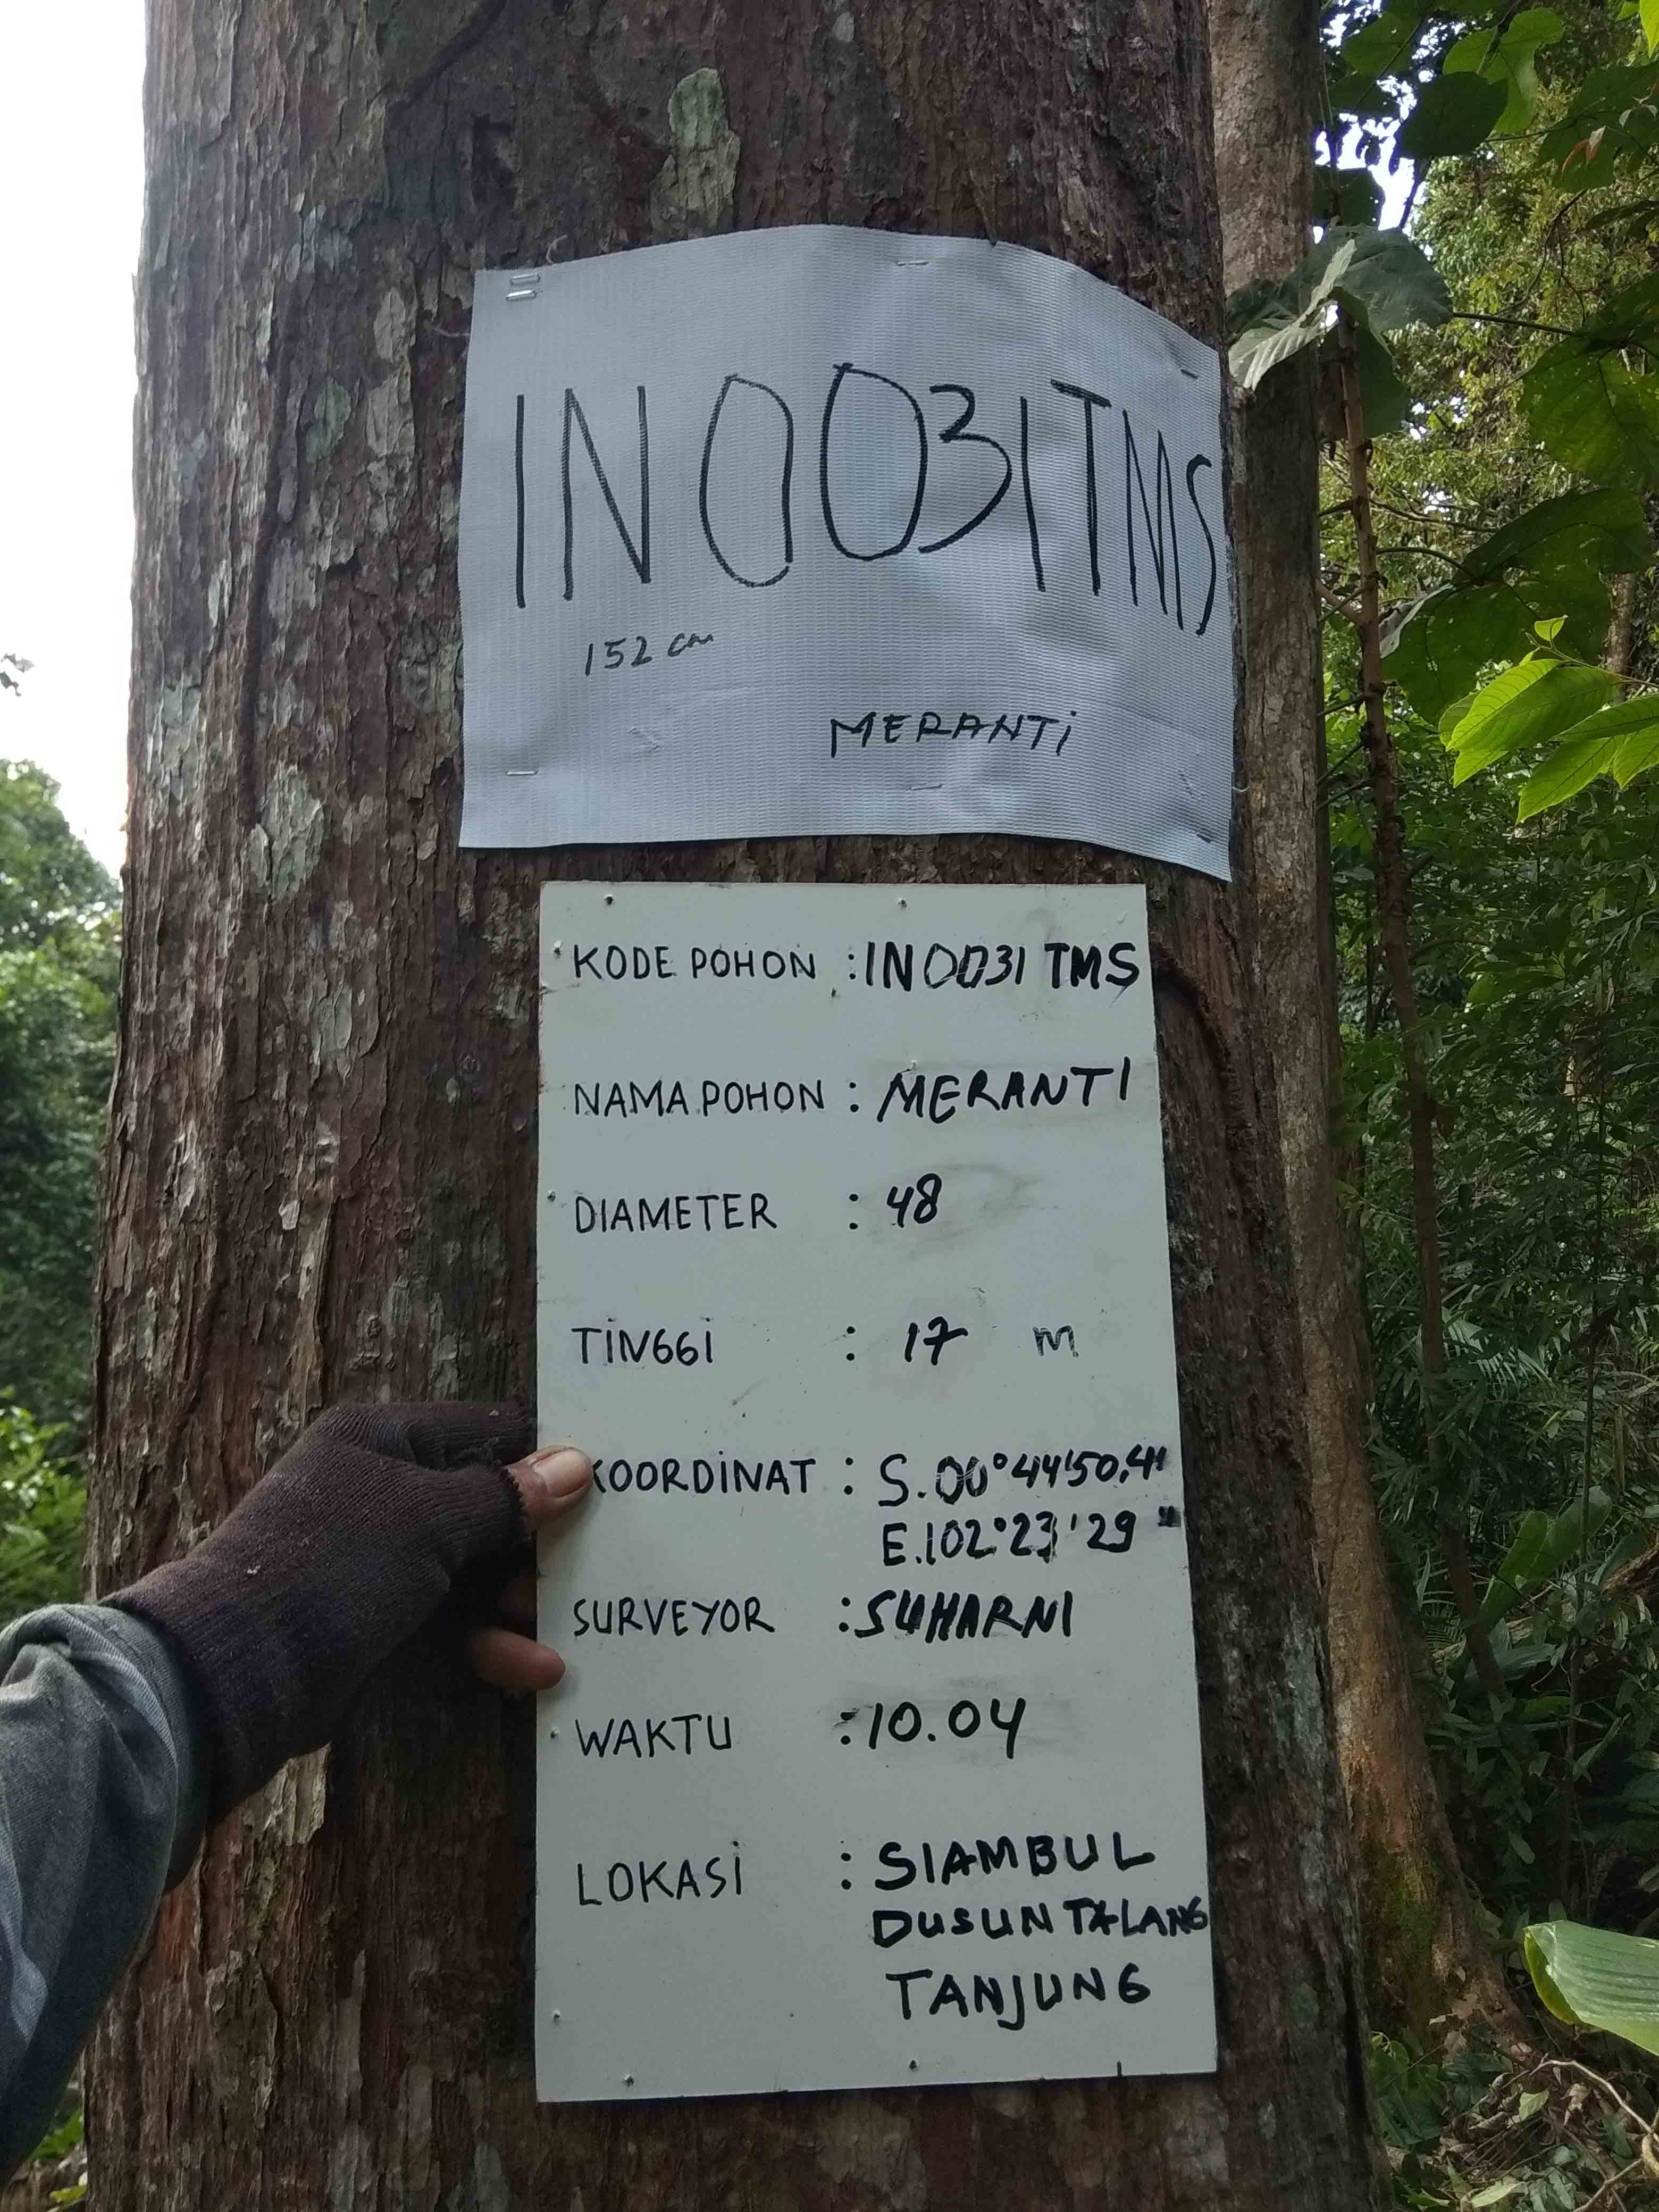 IN0031TMS
152 cm
MERANTi
KODE POHON : IN0031 TMS
NAMA POHON : MERANTI
DIAMETER : 48
TiNGGi : 17 m
KOORDiNAT : S.00°44'50,4"
E.102°23'29"
SURVEYOR : SUHARNI
WAKTU : 10.04
LOKASi : SIAMBUL
DUSUN TALANG
TANJUNG